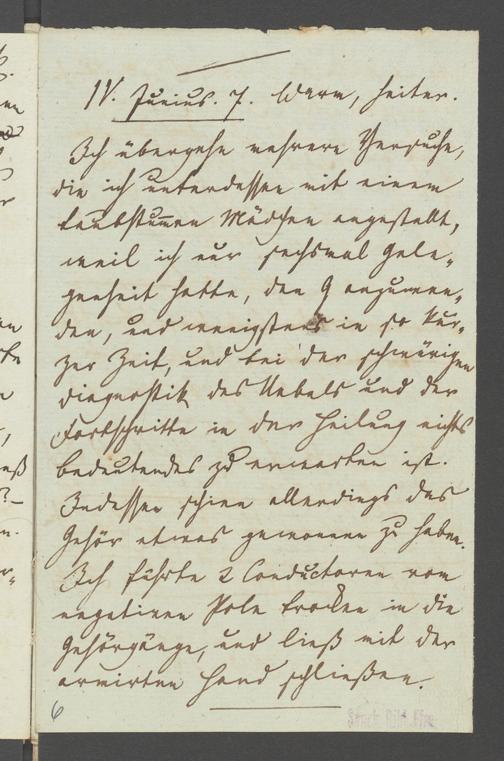 IV. Junius. 7. Warm, heiter.
Ich übergehe mehrere Versuche,
die ich unterdessen mit einem
taubstummen Mädchen angestellt,
weil ich nur sechsmal Gele-
genheit hatte, den G anzuwen-
den, und wenigstens in so kur-
zer Zeit, und bei der schwürigen
Diagnostik des Uebels und der
Fortschritte in der Heilung nichts
bedeutendes zu erwarten ist.
Indessen schien allerdings das
Gehör etwas gewonnen zu haben.
Ich führte 2 Conductoren vom
negativen Pole trocken in die
Gehörgänge, und ließ mit der
armirten Hand schließen.
6